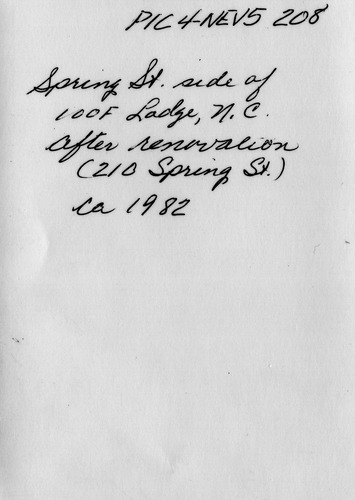 PIC 4-NEV5 208
Spring St. side of
IOOF Lodge, N.C.
after renovation
(210 Spring St.)
ca 1982